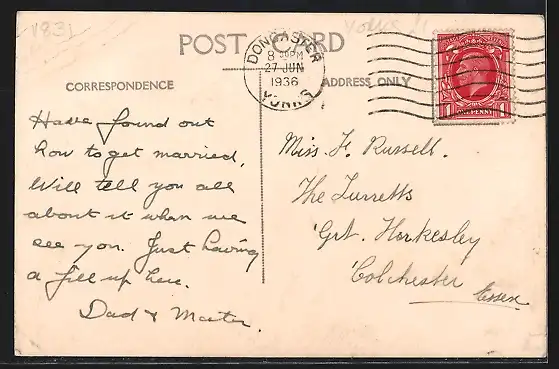 1831
Yorks
POST CARD
DONCASTER
8 PM
27 JUN
1936
YORKS
CORRESPONDENCE
ADDRESS ONLY
1 ONE PENNY 1
Have found out
how to get married,
Will tell you all
about it when we
see you. Just having
a fill up here.
Dad & Mater.
Miss F. Russell.
The Turretts
Grt. Horkesley
Colchester
Essex